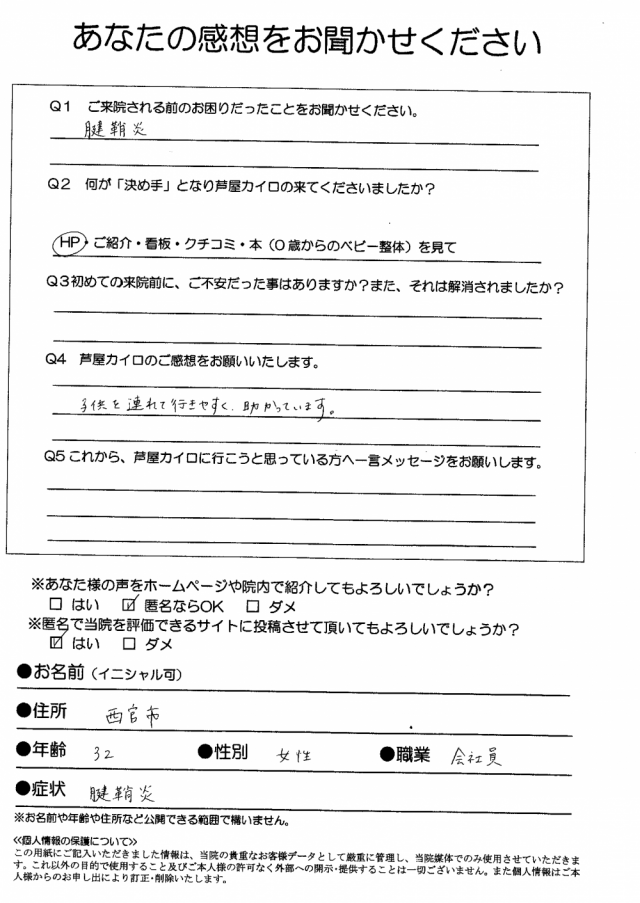 あなたの感想をお聞かせください
Q1 ご来院される前のお困りだったことをお聞かせください。
腱鞘炎
Q2 何が「決め手」となり芦屋カイロの来てくださいましたか？
HP・ご紹介・看板・クチコミ・本（０歳からのベビー整体）を見て
Q3初めての来院前に、ご不安だった事はありますか？また、それは解消されましたか？
Q4 芦屋カイロのご感想をお願いいたします。
子供を連れて行きやすく、助かっています。
Q5これから、芦屋カイロに行こうと思っている方へ一言メッセージをお願いします。
※あなた様の声をホームページや院内で紹介してもよろしいでしょうか？
□ はい ☑ 匿名ならOK □ ダメ
※匿名で当院を評価できるサイトに投稿させて頂いてもよろしいでしょうか？
☑ はい □ ダメ
●お名前（イニシャル可）
●住所 西宮市
●年齢 32 ●性別 女性 ●職業 会社員
●症状 腱鞘炎
※お名前や年齢や住所など公開できる範囲で構いません。
≪個人情報の保護について≫
この用紙にご記入いただきました情報は、当院の貴重なお客様データとして厳重に管理し、当院媒体でのみ使用させていただきま
す。これ以外の目的で使用すること及びご本人様の許可なく外部への開示・提供することは一切ございません。また個人情報はご本
人様からのお申し出により訂正・削除いたします。